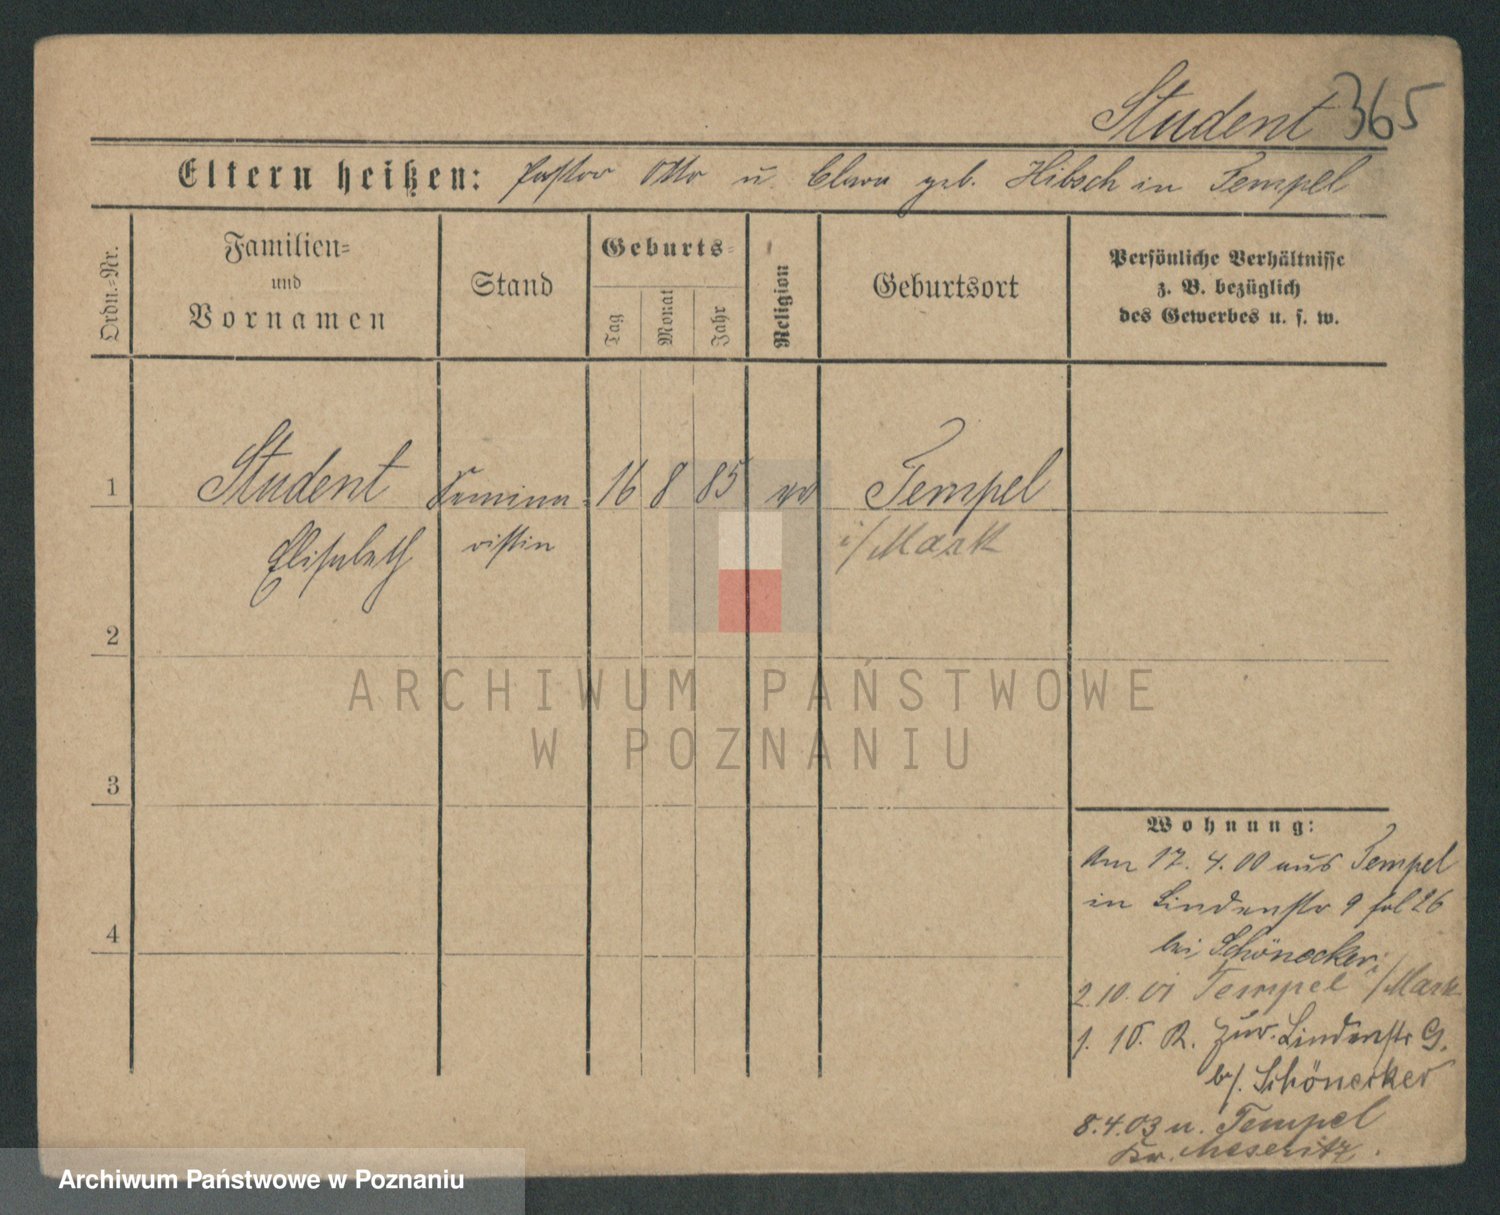 Student 365
Eltern heißen: Pastor Otto u Clara geb. Hibsch in Tempel
Ordn.-Nr.
Familien-
und
Vornamen
Stand
Geburts-
Tag
Monat
Jahr
Religion
Geburtsort
Persönliche Verhältnisse
z. B. bezüglich
des Gewerbes u. s. w.
1 Student Semina- 16 8 85 ev Tempel
Elisabeth ristin i/Mark
2
3
4
ARCHIWUM PAŃSTWOWE
W POZNANIU
Wohnung:
Am 17. 4. 00 aus Tempel
in Lindenstr 9 fol 26
bei Schönecker
2.10.01 Tempel i/Mark
1. 10. R. zur. Lindenstr 9.
b/. Schönecker
8.4.03 n. Tempel
Kr. Meseritz.
Archiwum Państwowe w Poznaniu